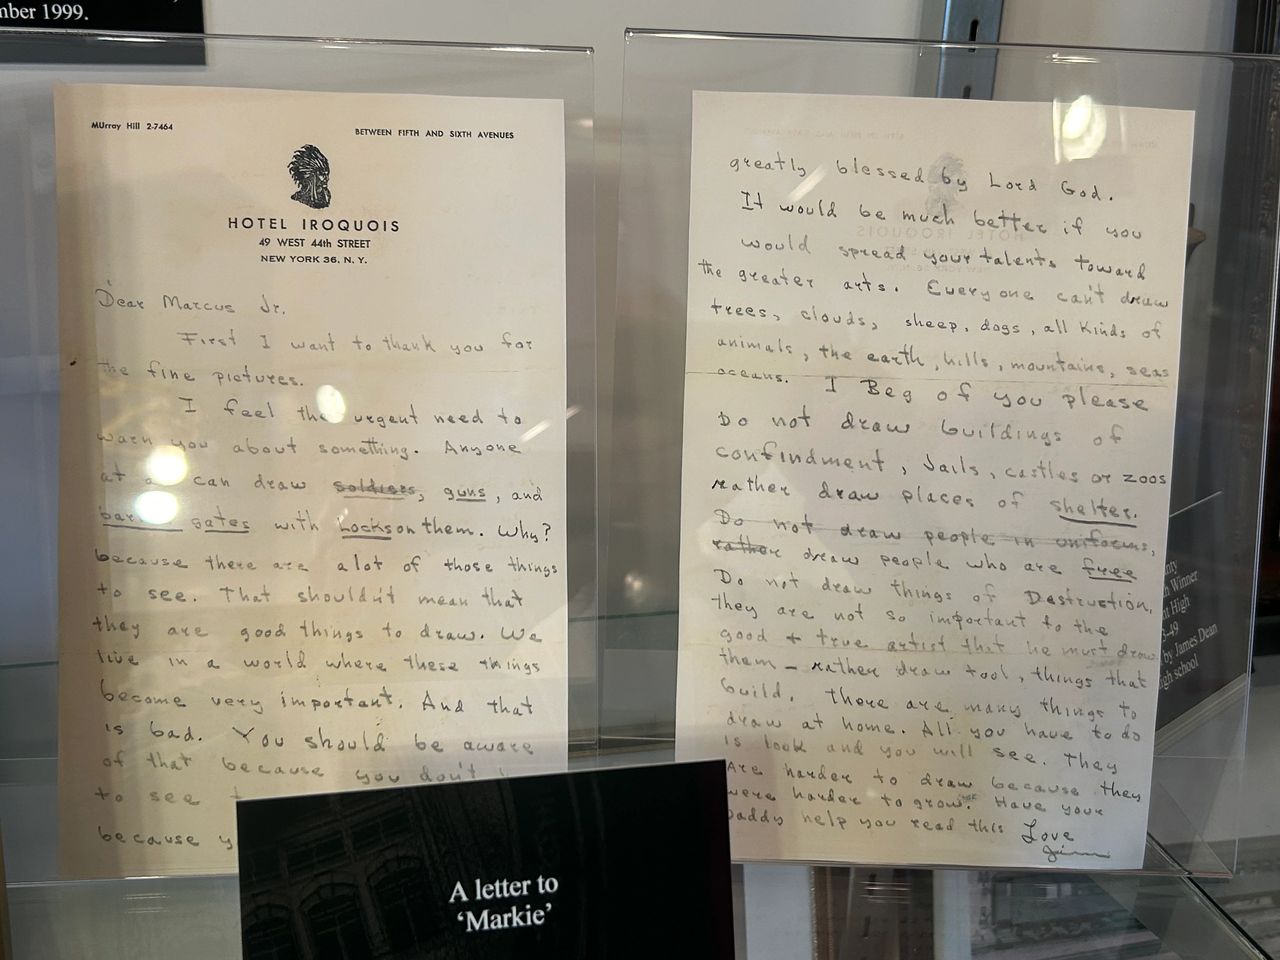 mber 1999.
MUrray Hill 2-7464
BETWEEN FIFTH AND SIXTH AVENUES
HOTEL IROQUOIS
49 WEST 44th STREET
NEW YORK 36, N. Y.
Dear Marcus Jr.
First I want to thank you for
the fine pictures.
I feel the urgent need to
warn you about something. Anyone
at a can draw soldiers, guns, and
gates with Locks on them. Why?
because there are alot of those things
to see. That shouldn't mean that
they are good things to draw. We
live in a world where these things
become very important. And that
is bad. You should be aware
of that because you don't
to see
because
greatly blessed by Lord God.
It would be much better if you
would spread your talents toward
the greater arts. Everyone can't draw
trees, clouds, sheep, dogs, all kinds of
animals, the earth, hills, mountains, seas
oceans. I Beg of you please
Do not draw buildings of
confindment, Jails, castles or zoos
rather draw places of shelter.
Do not draw people in uniforms,
rather draw people who are free
Do not draw things of Destrustion,
they are not so important to the
good + true artist that he must draw
them — rather draw tool, things that
build. There are many things to
draw at home. All you have to do
is look and you will see. They
Are harder to draw because they
were harder to grow. Have your
Daddy help you read this Love
Jim
nty
Winner
High
3-49
by James Dean
gh school
A letter to
'Markie'